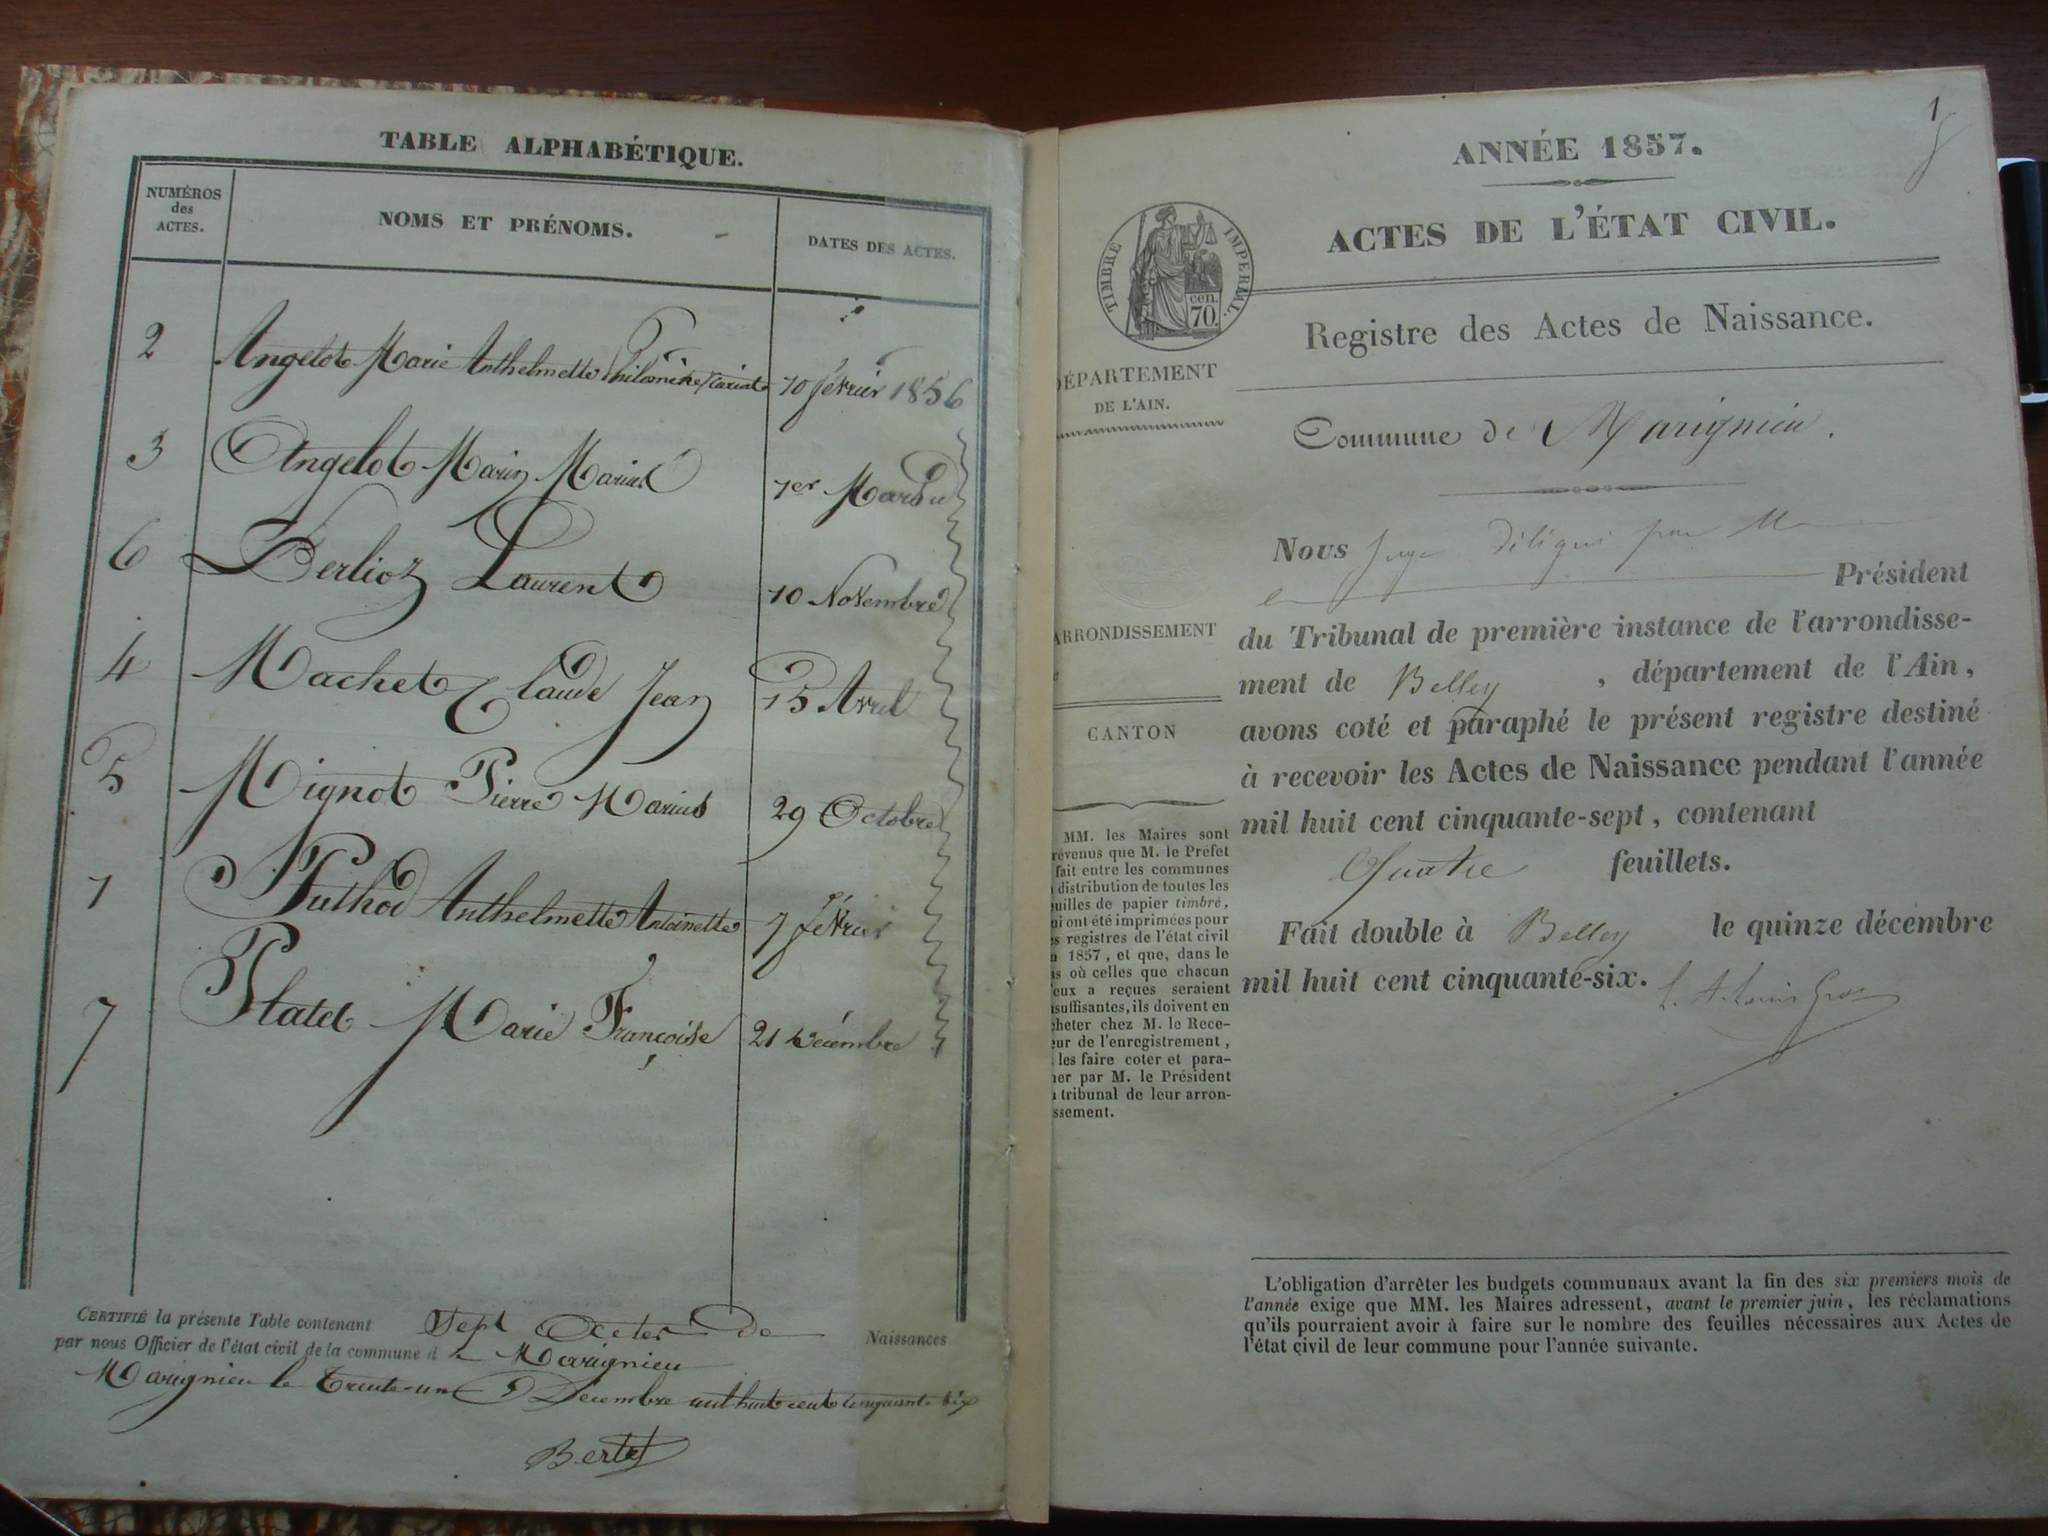 TABLE ALPHABÉTIQUE.
NUMÉROS
des
ACTES.
NOMS ET PRÉNOMS.
DATES DES ACTES.
2 Angelot Marie Anthelmette Philomène 10 février 1856
3 Angelot Marin Marius 1er Mars
6 Berlioz Laurent 10 Novembre
4 Machet Claude Jean 15 Avril
5 Mignot Pierre Marius 29 Octobre
1 Puthod Anthelmette Antoinette 7 février
7 Platet Marie Françoise 21 Décembre
CERTIFIÉ la présente Table contenant Sept Actes de Naissances
par nous Officier de l'état civil de la commune de Marignieu
Marignieu le Trente-un Décembre mil huit cent cinquante six
Bertet
1
ANNÉE 1857.
ACTES DE L'ÉTAT CIVIL.
TIMBRE IMPERIAL.
cen.
70.
Registre des Actes de Naissance.
DÉPARTEMENT
DE L'AIN.
Commune de Marignieu.
ARRONDISSEMENT
CANTON
MM. les Maires sont
révenus que M. le Préfet
fait entre les communes
distribution de toutes les
uilles de papier timbré,
ui ont été imprimées pour
s registres de l'état civil
1857, et que, dans le
s où celles que chacun
'eux a reçues seraient
suffisantes, ils doivent en
cheter chez M. le Rece-
eur de l'enregistrement,
les faire coter et para-
er par M. le Président
tribunal de leur arron-
ssement.
Nous Juge délégué par M
Président
du Tribunal de première instance de l'arrondisse-
ment de Belley, département de l'Ain,
avons coté et paraphé le présent registre destiné
à recevoir les Actes de Naissance pendant l'année
mil huit cent cinquante-sept, contenant
Quatre feuillets.
Fait double à Belley le quinze décembre
mil huit cent cinquante-six.
L'obligation d'arrêter les budgets communaux avant la fin des six premiers mois de
l'année exige que MM. les Maires adressent, avant le premier juin, les réclamations
qu'ils pourraient avoir à faire sur le nombre des feuilles nécessaires aux Actes de
l'état civil de leur commune pour l'année suivante.